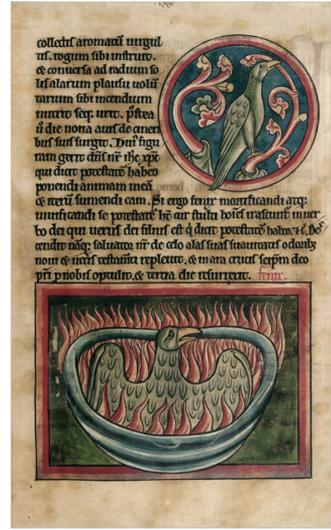 collectis aromatū uirgul
tis. rogum sibi instruit.
& conuersa ad radium so
lis alarum plausu uolū
tarium sibi incendium
nutrit seqʒ urit. pʳstea
ū die nona auis de cineri
bus suis surgit. Huiʹ figu
ram gerit dn̄s nr̄ ihc̄ xpc̄
qui dicit potestatē habeo
ponendi animam meā
& iterū sumendi eam. Si ergo fenix mortificandi atqʒ
uiuificandi se potestatē ħt cur stulti hoīes irascunt̄ in uer
bo dei qui uerus dei filius est q̇ dicit potestatē habeo
cendit nāqʒ saluator nr̄ de celo alas suas suauitatis odorib
noui & ueteris testam̄ti repleuit. & in ara crucis seip̄m deo
patri p nobis optulit. & tertia die resurrexit. fenix.